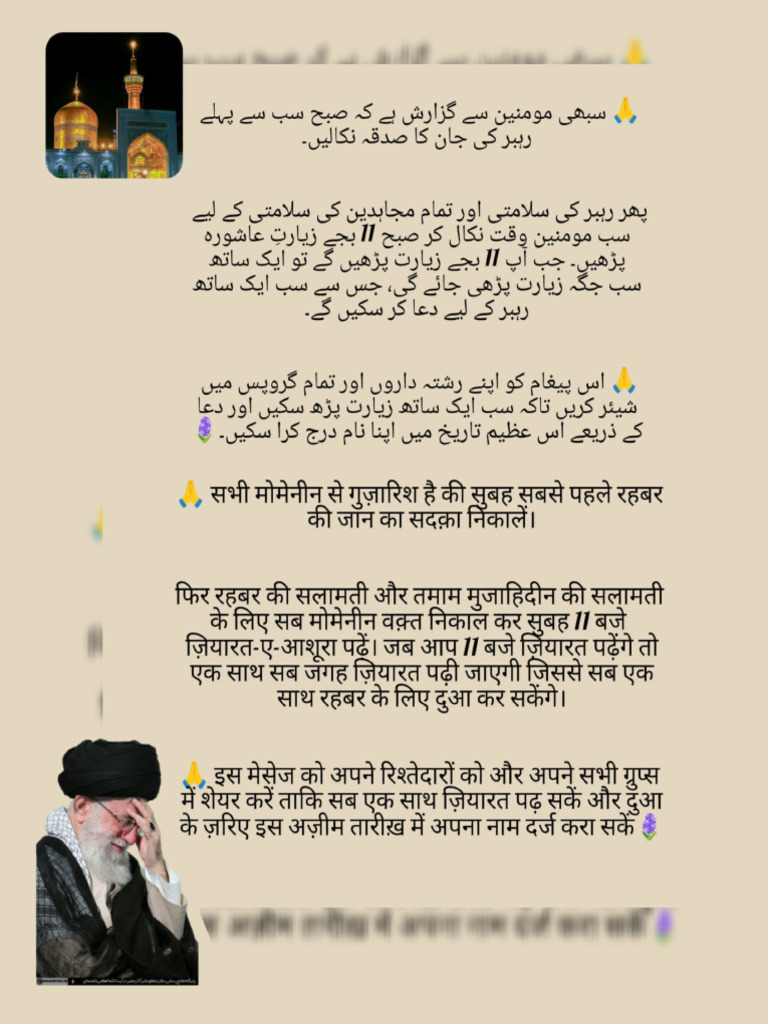 🙏 سبھی مومنین سے گزارش ہے کہ صبح سب سے پہلے
رہبر کی جان کا صدقہ نکالیں۔
پھر رہبر کی سلامتی اور تمام مجاہدین کی سلامتی کے لیے
سب مومنین وقت نکال کر صبح 11 بجے زیارتِ عاشورہ
پڑھیں۔ جب آپ 11 بجے زیارت پڑھیں گے تو ایک ساتھ
سب جگہ زیارت پڑھی جائے گی، جس سے سب ایک ساتھ
رہبر کے لیے دعا کر سکیں گے۔
🙏 اس پیغام کو اپنے رشتہ داروں اور تمام گروپس میں
شیئر کریں تاکہ سب ایک ساتھ زیارت پڑھ سکیں اور دعا
کے ذریعے اس عظیم تاریخ میں اپنا نام درج کرا سکیں۔ 🪻
🙏 सभी मोमेनीन से गुज़ारिश है की सुबह सबसे पहले रहबर
की जान का सदक़ा निकालें।
फिर रहबर की सलामती और तमाम मुजाहिदीन की सलामती
के लिए सब मोमेनीन वक़्त निकाल कर सुबह 11 बजे
ज़ियारत-ए-आशूरा पढ़ें। जब आप 11 बजे ज़ियारत पढ़ेंगे तो
एक साथ सब जगह ज़ियारत पढ़ी जाएगी जिससे सब एक
साथ रहबर के लिए दुआ कर सकेंगे।
🙏 इस मेसेज को अपने रिश्तेदारों को और अपने सभी ग्रुप्स
में शेयर करें ताकि सब एक साथ ज़ियारत पढ़ सकें और दुआ
के ज़रिए इस अज़ीम तारीख़ में अपना नाम दर्ज करा सकें 🪻